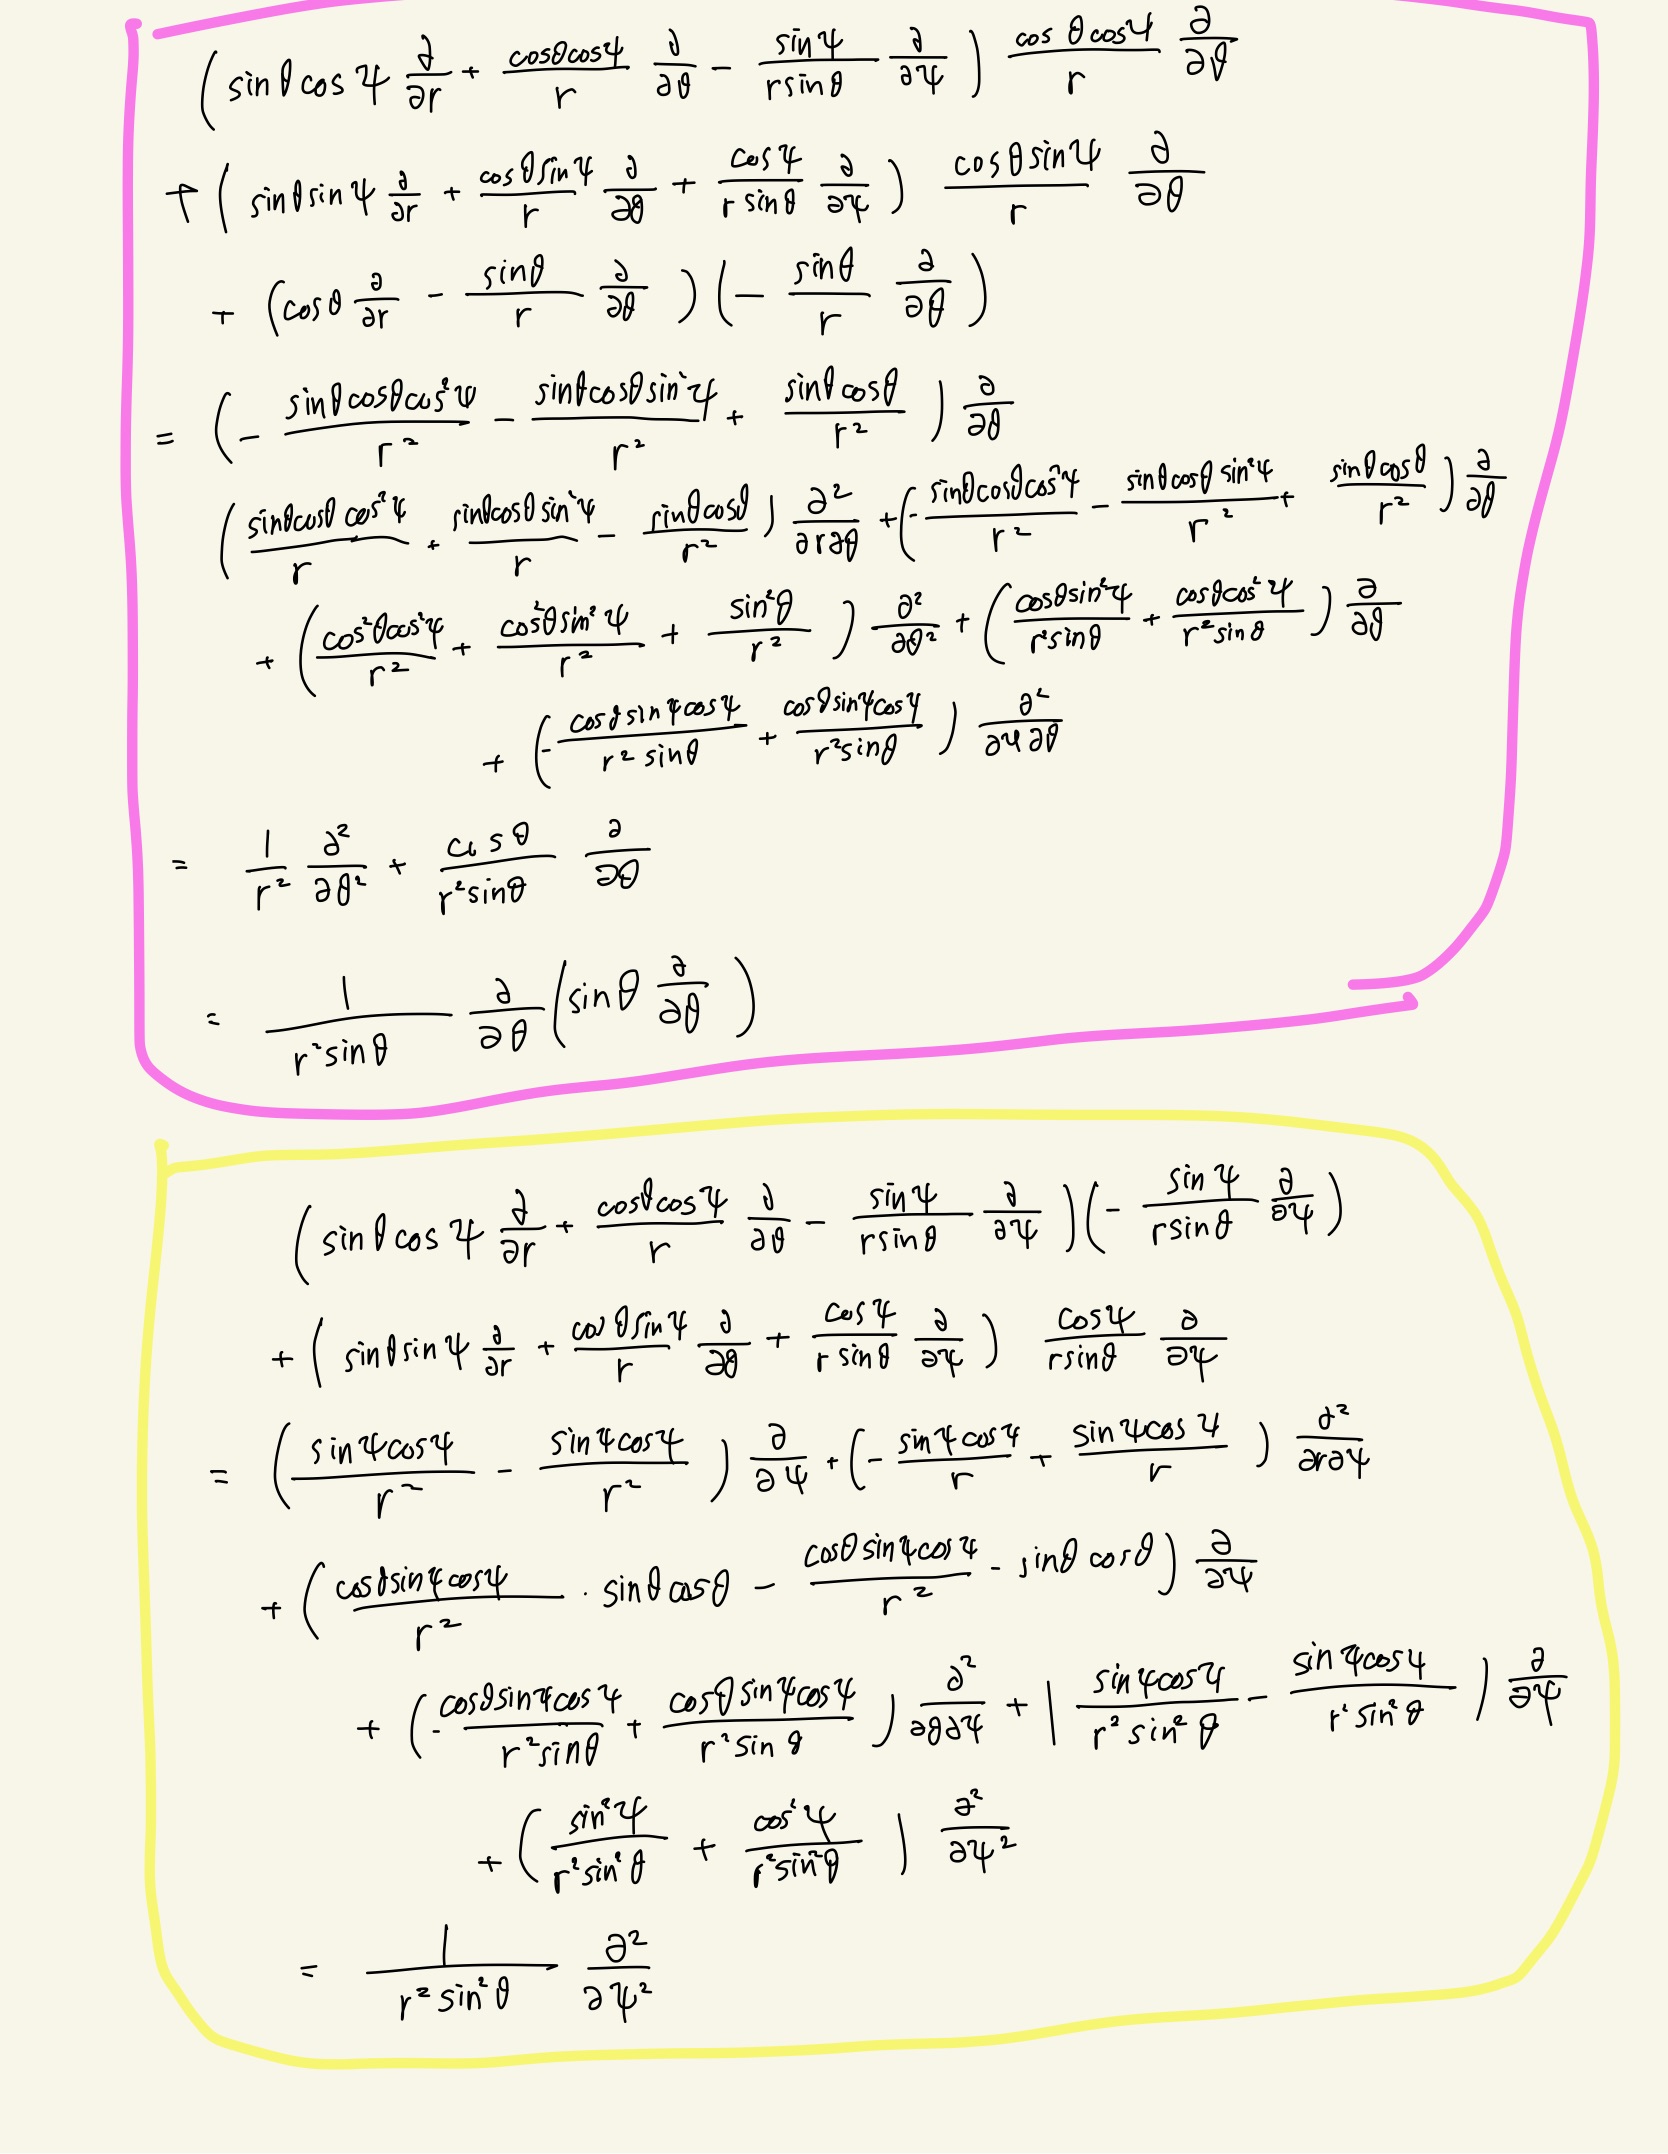 (sinθcosψ ∂/∂r + cosθcosψ/r ∂/∂θ − sinψ/rsinθ ∂/∂ψ) cosθcosψ/r ∂/∂θ
+ (sinθsinψ ∂/∂r + cosθsinψ/r ∂/∂θ + cosψ/rsinθ ∂/∂ψ) cosθsinψ/r ∂/∂θ
+ (cosθ ∂/∂r − sinθ/r ∂/∂θ)(− sinθ/r ∂/∂θ)
= (− sinθcosθcos²ψ/r² − sinθcosθsin²ψ/r² + sinθcosθ/r²) ∂/∂θ
(sinθcosθcos²ψ/r + sinθcosθsin²ψ/r − sinθcosθ/r²) ∂²/∂r∂θ + (− sinθcosθcos²ψ/r² − sinθcosθsin²ψ/r² + sinθcosθ/r²) ∂/∂θ
+ (cos²θcos²ψ/r² + cos²θsin²ψ/r² + sin²θ/r²) ∂²/∂θ² + (cosθsin²ψ/r²sinθ + cosθcos²ψ/r²sinθ) ∂/∂θ
+ (− cosθsinψcosψ/r²sinθ + cosθsinψcosψ/r²sinθ) ∂²/∂ψ∂θ
= 1/r² ∂²/∂θ² + cosθ/r²sinθ ∂/∂θ
= 1/r²sinθ ∂/∂θ (sinθ ∂/∂θ)
(sinθcosψ ∂/∂r + cosθcosψ/r ∂/∂θ − sinψ/rsinθ ∂/∂ψ)(− sinψ/rsinθ ∂/∂ψ)
+ (sinθsinψ ∂/∂r + cosθsinψ/r ∂/∂θ + cosψ/rsinθ ∂/∂ψ) cosψ/rsinθ ∂/∂ψ
= (sinψcosψ/r² − sinψcosψ/r²) ∂/∂ψ + (− sinψcosψ/r + sinψcosψ/r) ∂²/∂r∂ψ
+ (cosθsinψcosψ/r² · sinθcosθ − cosθsinψcosψ/r² - sinθcosθ) ∂/∂ψ
+ (− cosθsinψcosψ/r²sinθ + cosθsinψcosψ/r²sinθ) ∂²/∂θ∂ψ + (sinψcosψ/r²sin²θ − sinψcosψ/r²sin²θ) ∂/∂ψ
+ (sin²ψ/r²sin²θ + cos²ψ/r²sin²θ) ∂²/∂ψ²
= 1/r²sin²θ ∂²/∂ψ²